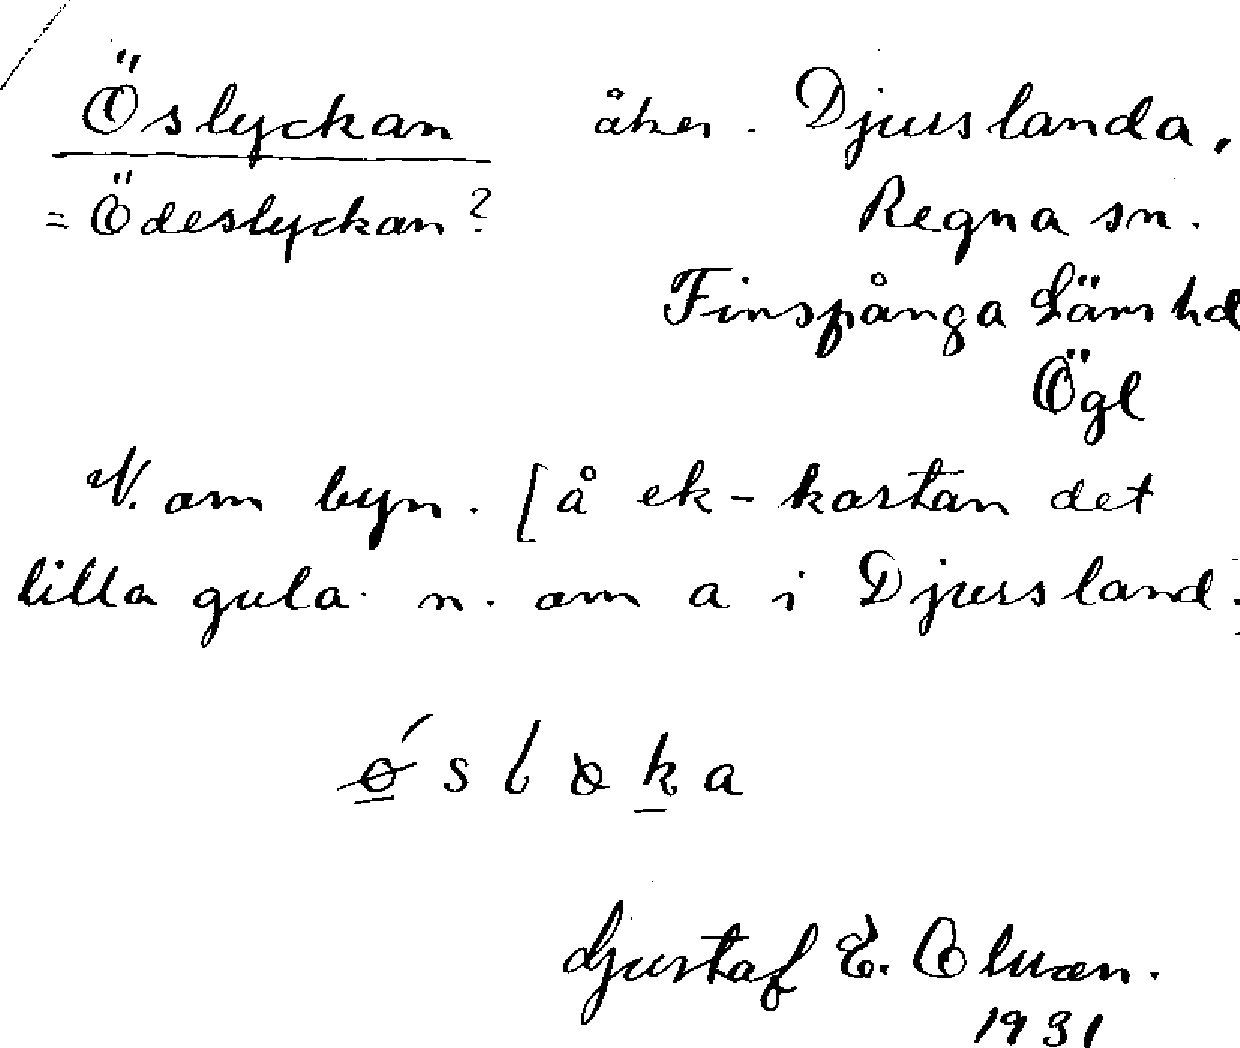 Öslyckan åker. Djurslanda,
= Ödeslyckan? Regna sn.
Finspånga läns hd
Ögl
N. om byn. [å ek-kartan det
lilla gula n. om a i Djursland.]
Gustaf E.
1931